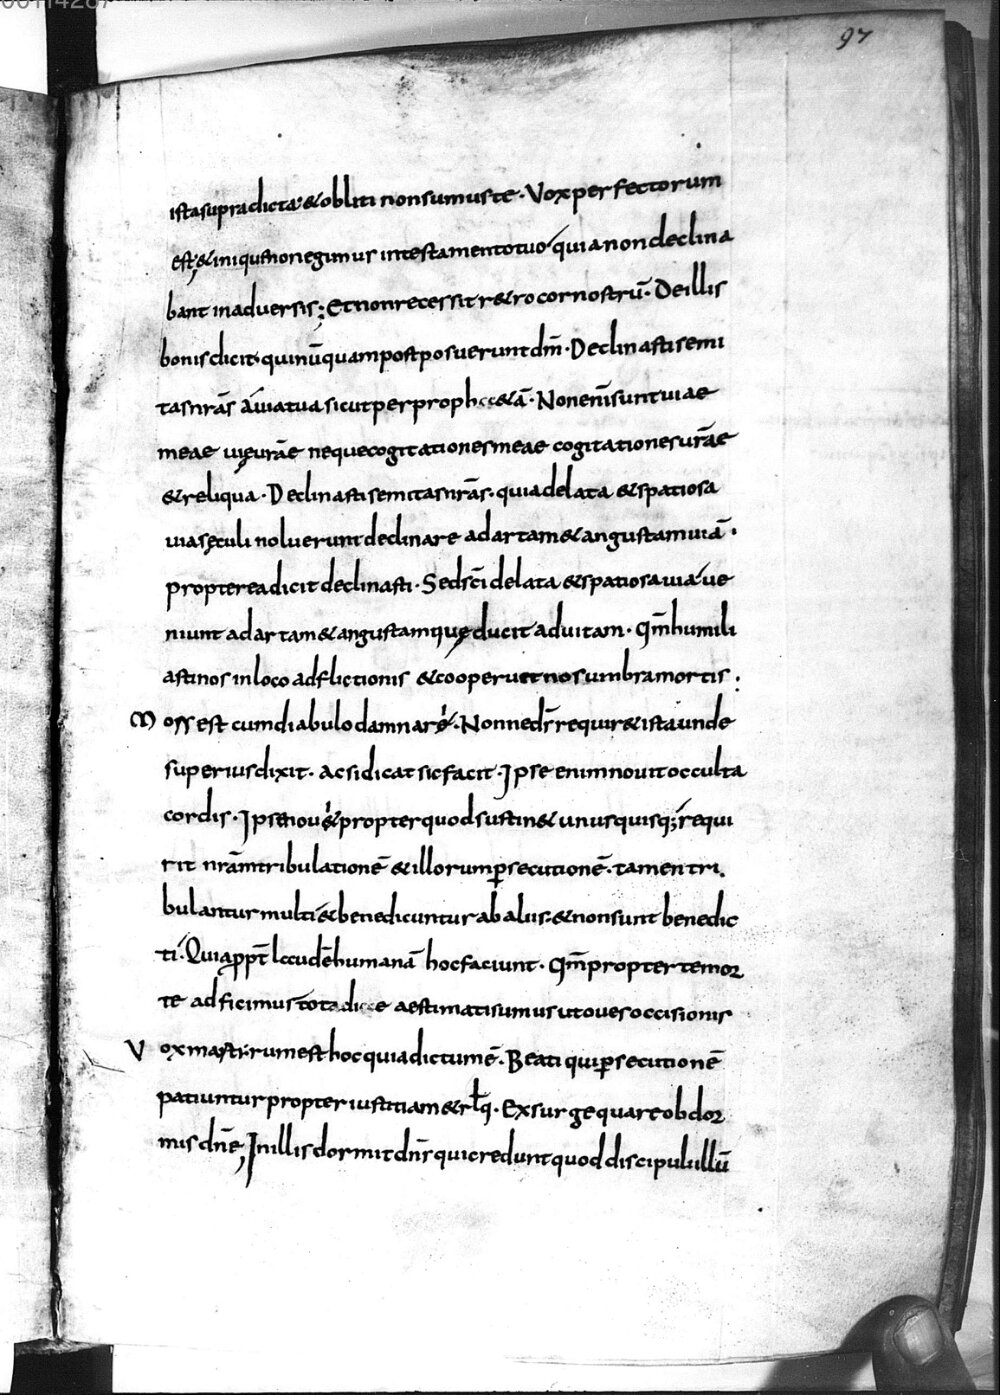 97
ista supra dicta & obliti non sumus te · Vox perfectorum
est; & inique non egimus in testamento tuo quia non declina
bant in adversis; Et non recessit r&ro cor nostrū · De illis
bonis dicit qui nūquam postposuerunt dm̄ · Declinasti semi
tas nrās a via tua sicut per proph&ā · Non enī sunt viae
meae vię vrāe neque cogitationes meae cogitationes vrāe
& reliqua · Declinasti semitas nrās · quia de lata & spatiosa
via sęculi noluerunt declinare ad artam & angustam viā ·
propterea dicit declinasti · Sed scī de lata & spatiosa via ve
niunt ad artam & angustam quę ducit ad vitam · Qm̄ humili
asti nos in loco adflictionis & cooperuit nos umbra mortis;
Mors est cum diabulo damnare · Non ne ds̄ requir& ista unde
superius dixit · ac si dicat sic facit · Ipse enim novit occulta
cordis · Ipse nov& propter quod sustin& unusquisq; requi
rit nrām tribulationē & illorum p̱secutionē · tamen tri
bulantur multi & benedicuntur ab aliis · & non sunt benedic
ti · Quia ppt̄ laudē humanā hoc faciunt · Qm̄ propter te mor
te adficimur tota die aestimati sumus ut oves occisionis
Vox martirum est hoc quia dictum ē · Beati qui p̱secutionē
patiuntur propter iustitiam & rlq · Exsurge quare obdor
mis dn̄e; In illis dormit dn̄s qui credunt quod discipuli illū